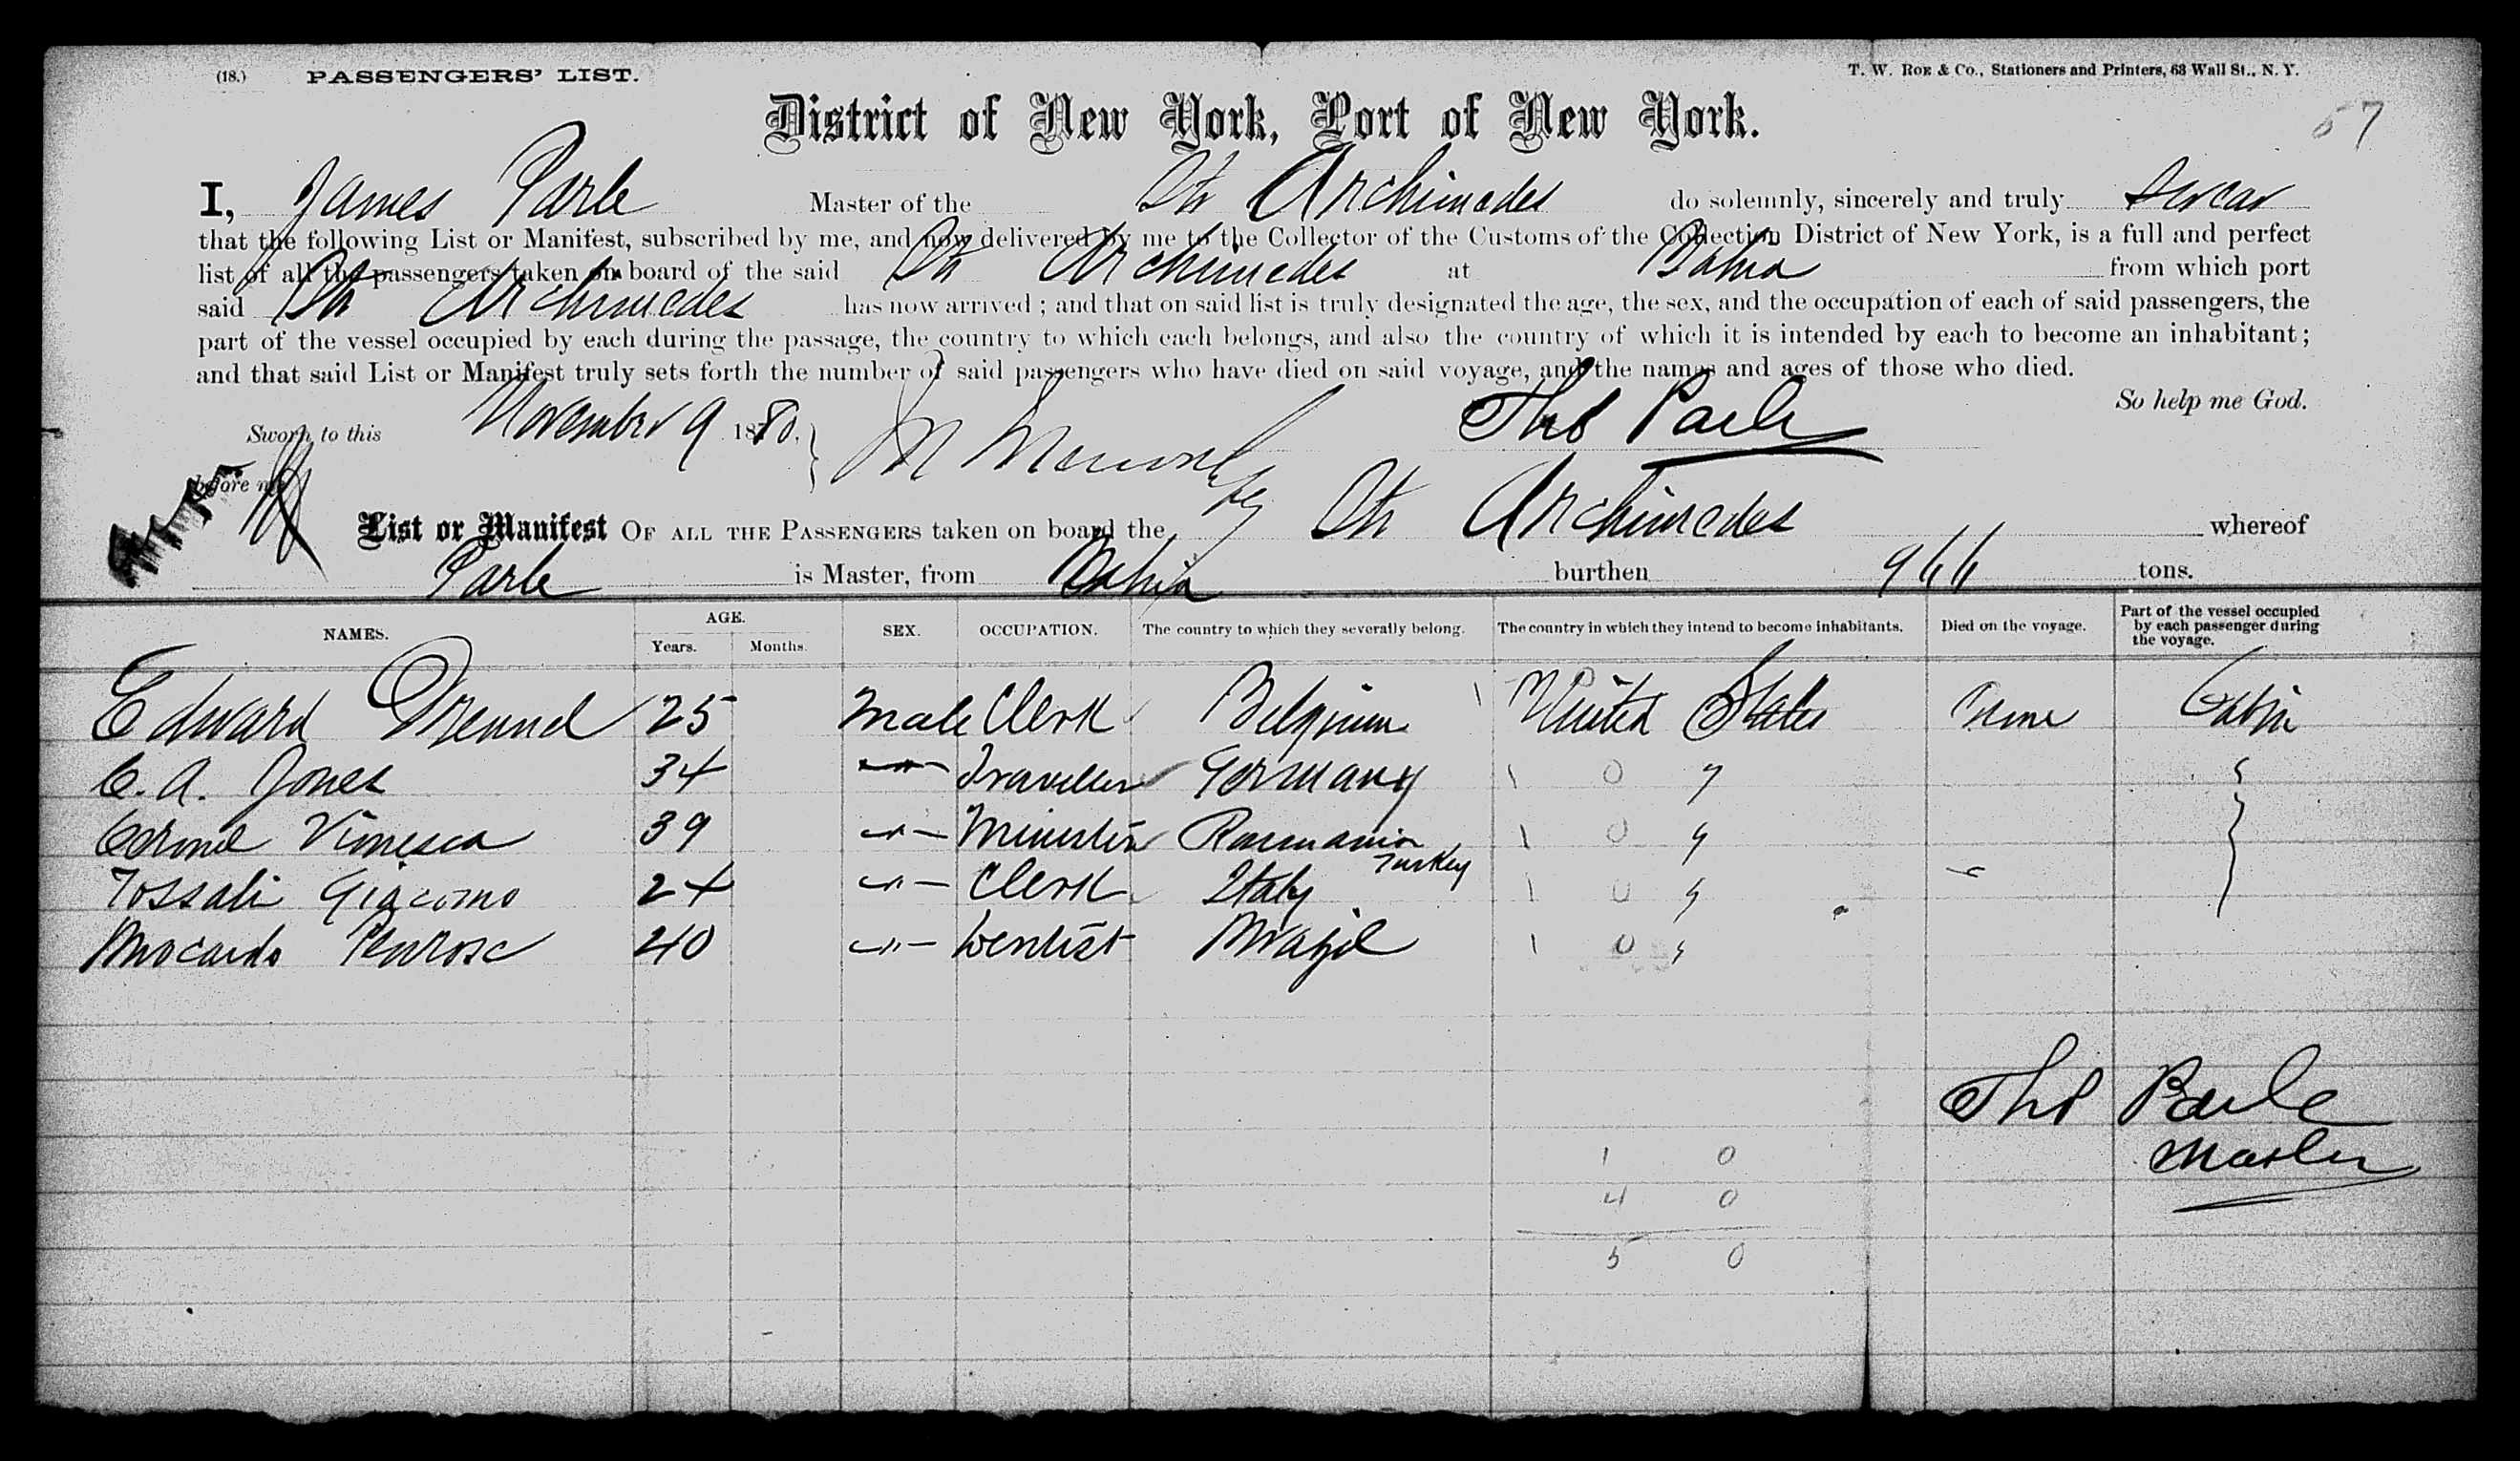 (18.) PASSENGERS' LIST. T. W. ROE & Co., Stationers and Printers, 63 Wall St., N. Y.
57
District of New York, Port of New York.
I, James Parle Master of the Str Archimedes do solemnly, sincerely and truly Swear
that the following List or Manifest, subscribed by me, and now delivered by me to the Collector of the Customs of the Collection District of New York, is a full and perfect
list of all the passengers taken on board of the said Str Archimedes at Bahia from which port
said Str Archimedes has now arrived ; and that on said list is truly designated the age, the sex, and the occupation of each of said passengers, the
part of the vessel occupied by each during the passage, the country to which each belongs, and also the country of which it is intended by each to become an inhabitant ;
and that said List or Manifest truly sets forth the number of said passengers who have died on said voyage, and the names and ages of those who died.
So help me God.
Sworn to this November 9 1880. Thos Parle
before me
List or Manifest OF ALL THE PASSENGERS taken on board the Str Archimedes whereof
Parle is Master, from Bahia burthen 966 tons.
NAMES. AGE. Years. Months. SEX. OCCUPATION. The country to which they severally belong. The country in which they intend to become inhabitants. Died on the voyage. Part of the vessel occupied by each passenger during the voyage.
Edward 25 Male Clerk Belgium United States None Cabin
C. A. Jones 34 —"— Traveller Germany 1 0 "
Vinesca 39 —"— Minister Roumania 1 0 "
Turkey
Tossali Giacomo 24 —"— Clerk Italy 1 0 "
Penrose 40 —"— Dentist Brazil 1 0 "
Thos Parle
Master
1 0
4 0
5 0